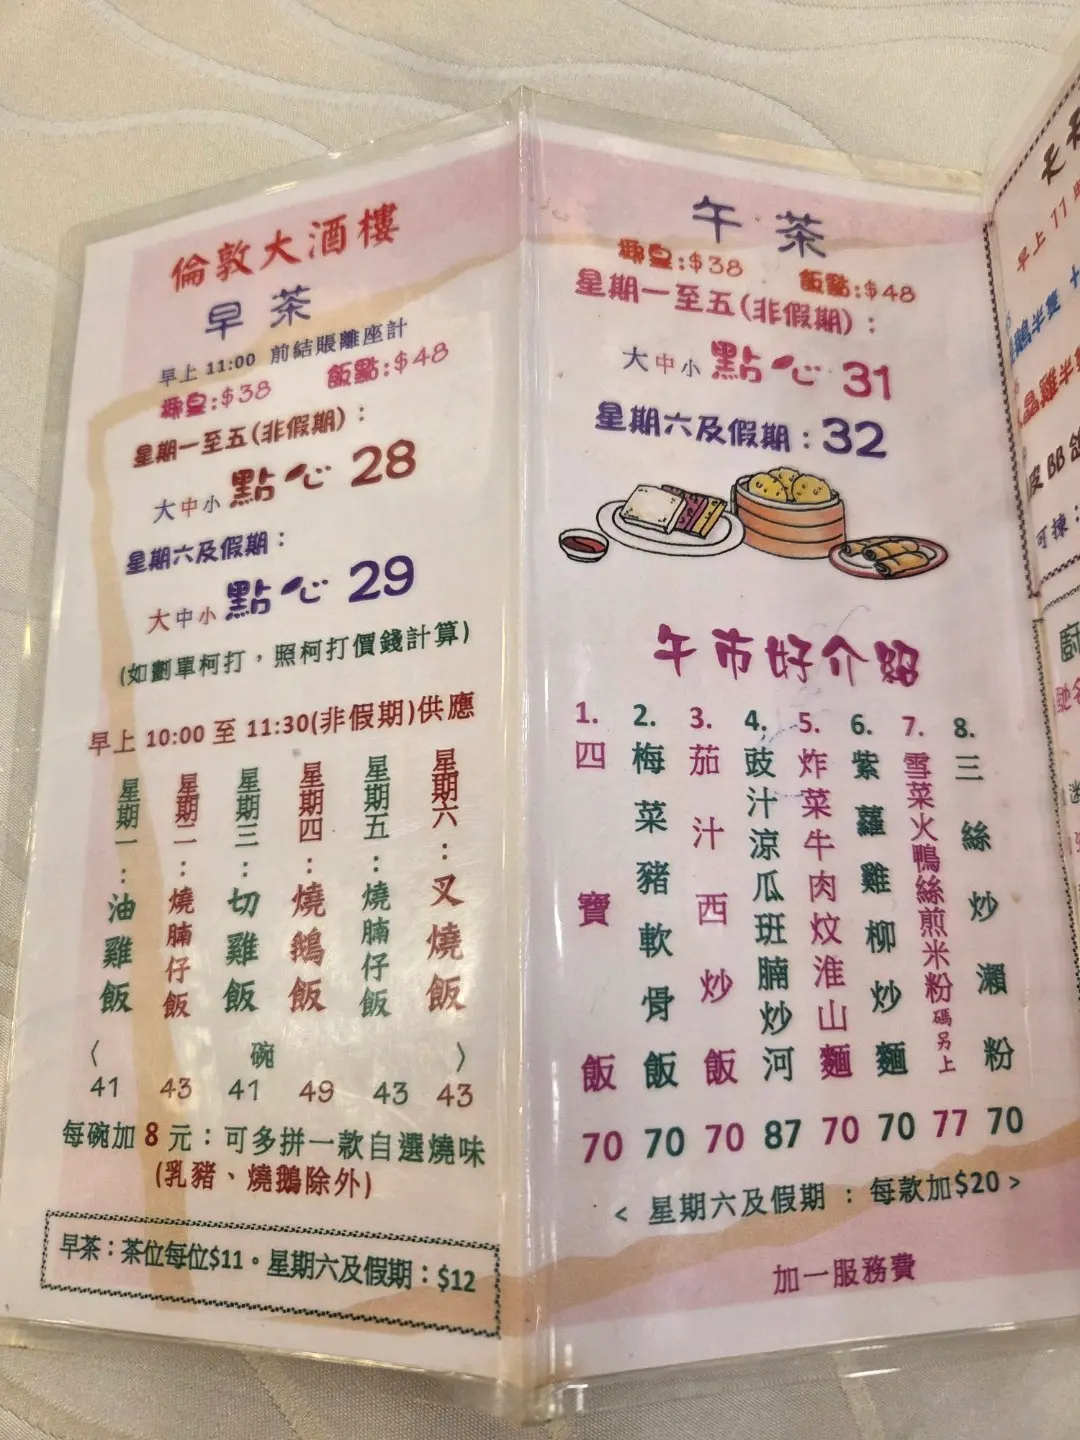 倫敦大酒樓
早茶
早上 11:00 前結賬離座計
椰皇:$38 飯點:$48
星期一至五(非假期)：
大中小點心 28
星期六及假期：
大中小點心 29
(如劃單柯打，照柯打價錢計算)
早上 10:00 至 11:30(非假期)供應
星期一：油雞飯
星期二：燒腩仔飯
星期三：切雞飯
星期四：燒鵝飯
星期五：燒腩仔飯
星期六：叉燒飯
〈 碗 〉
41 43 41 49 43 43
每碗加 8 元：可多拼一款自選燒味
(乳豬、燒鵝除外)
早茶：茶位每位$11。星期六及假期：$12
午茶
椰皇:$38 飯點:$48
星期一至五(非假期)：
大中小點心 31
星期六及假期：32
午市好介紹
1. 四寶飯
2. 梅菜豬軟骨飯
3. 茄汁西炒飯
4. 豉汁涼瓜班腩炒河
5. 炸菜牛肉炆淮山麵
6. 紫蘿雞柳炒麵
7. 雪菜火鴨絲煎米粉碼另上
8. 三絲炒瀨粉
70 70 70 87 70 70 77 70
< 星期六及假期：每款加$20 >
加一服務費
早上 11
鵝半隻
晶雞半隻
BB
可揀：
廚
馳名